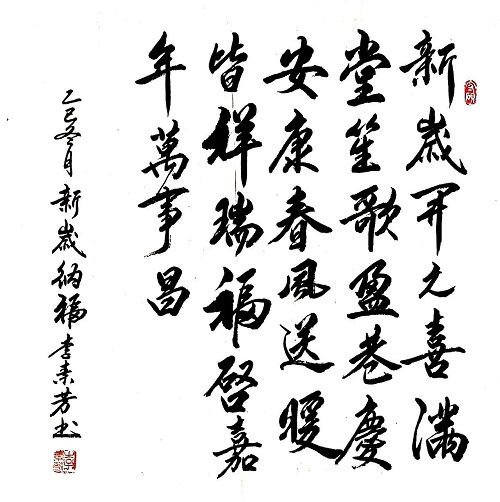 新歲開元喜滿
堂笙歌盈巷慶
安康春風送暖
皆祥瑞福啓嘉
年萬事昌
乙巳冬月新歲納福李素芳书